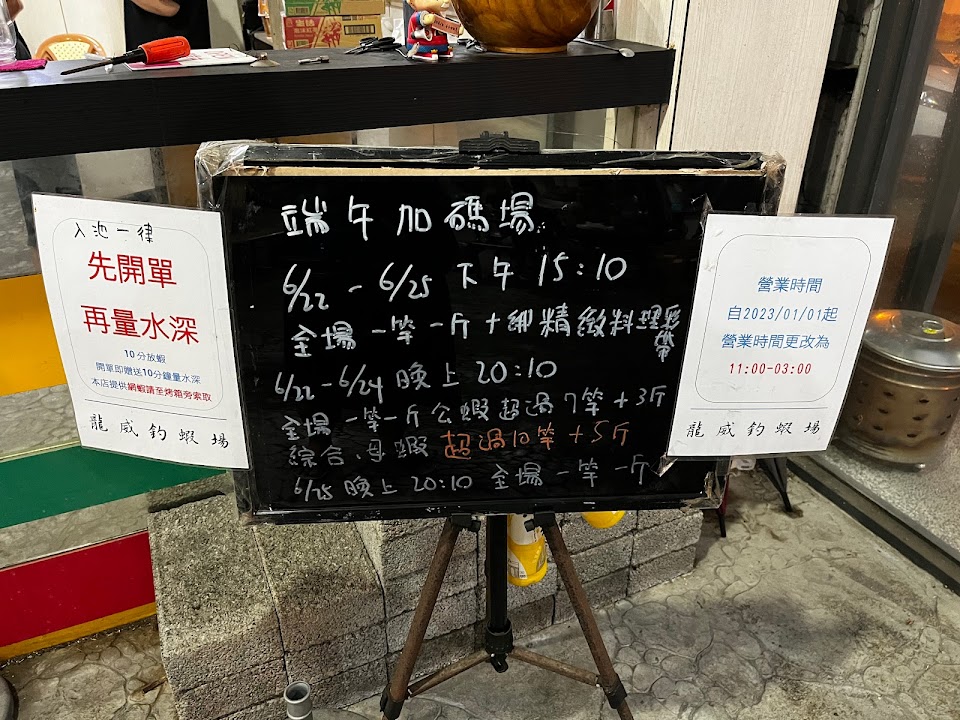 入池一律
先開單
再量水深
10分放蝦
開單即贈送10分鐘量水深
本店提供網蝦請至烤箱旁索取
龍威釣蝦場
端午加碼場
6/22 - 6/25 下午 15:10
全場一竿一斤+綁精緻料理彩帶
6/22-6/24 晚上 20:10
全場一竿一斤公蝦超過7竿+3斤
綜合、母蝦 超過10竿+5斤
6/25 晚上 20:10 全場一竿一斤
營業時間
自2023/01/01起
營業時間更改為
11:00-03:00
龍威釣蝦場